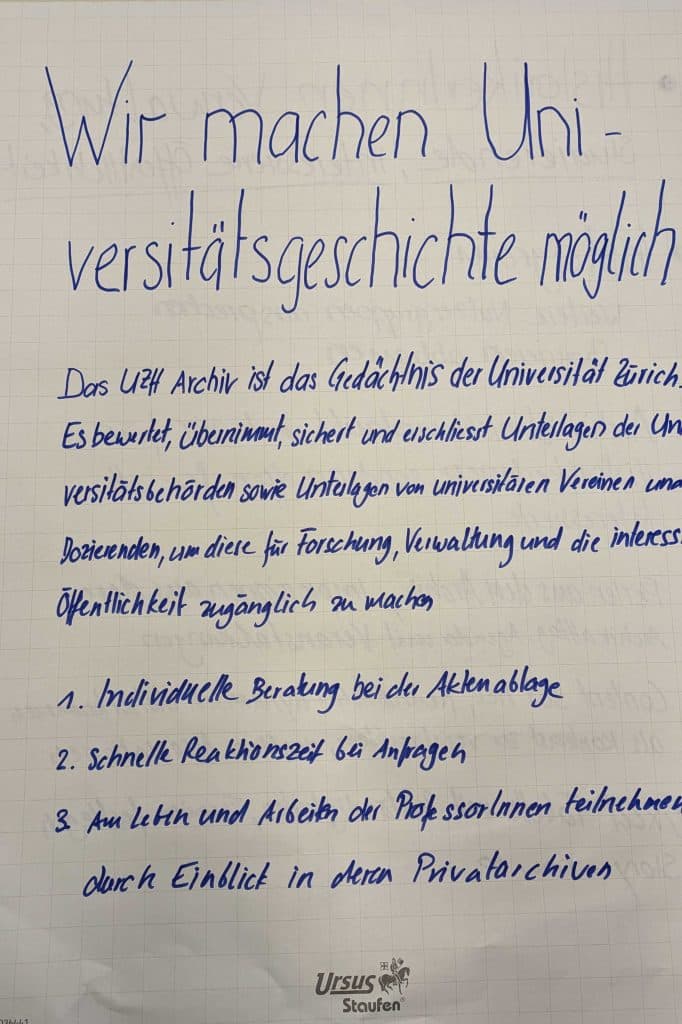 Wir machen Uni-
versitätsgeschichte möglich
Das UZH Archiv ist das Gedächtnis der Universität Zürich.
Es bewertet, übernimmt, sichert und erschliesst Unterlagen der Un
versitätsbehörden sowie Unterlagen von universitären Vereinen und
Dozierenden, um diese für Forschung, Verwaltung und die interess
Öffentlichkeit zugänglich zu machen
1. Individuelle Beratung bei der Aktenablage
2. Schnelle Reaktionszeit bei Anfragen
3. Am Leben und Arbeiten der ProfessorInnen teilnehmen
durch Einblick in deren Privatarchiven
Ursus
Staufen®